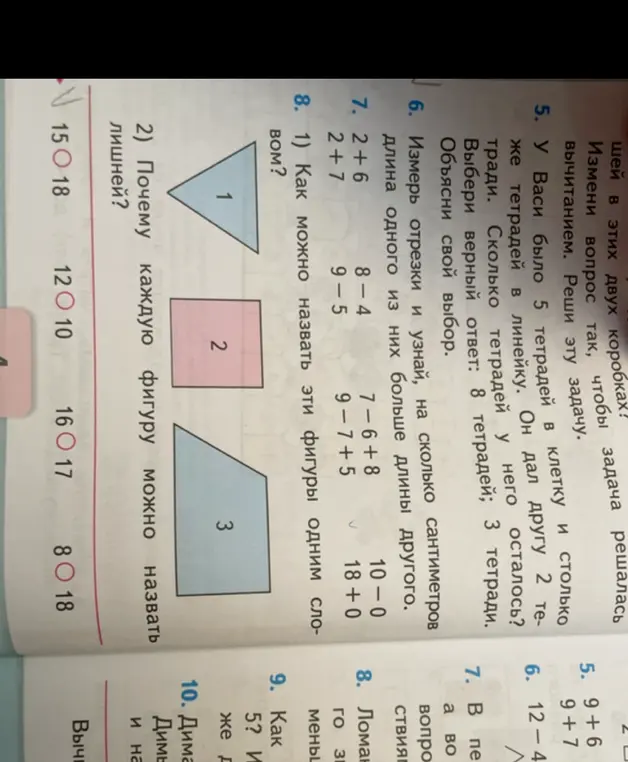 шей в этих двух коробках?
Измени вопрос так, чтобы задача решалась
вычитанием. Реши эту задачу.
5. У Васи было 5 тетрадей в клетку и столько
же тетрадей в линейку. Он дал другу 2 те-
тради. Сколько тетрадей у него осталось?
Выбери верный ответ: 8 тетрадей; 3 тетради.
Объясни свой выбор.
6. Измерь отрезки и узнай, на сколько сантиметров
длина одного из них больше длины другого.
7. 2 + 6 8 − 4 7 − 6 + 8 10 − 0
2 + 7 9 − 5 9 − 7 + 5 18 + 0
8. 1) Как можно назвать эти фигуры одним сло-
вом?
1 2 3
2) Почему каждую фигуру можно назвать
лишней?
15 ○ 18 12 ○ 10 16 ○ 17 8 ○ 18
5. 9 + 6
9 + 7
6. 12 − 4
7. В пе
а во
вопро
ствия
8. Лома
го з
мень
9. Как
5? И
же д
10. Дима
Димы
и на
Вычи